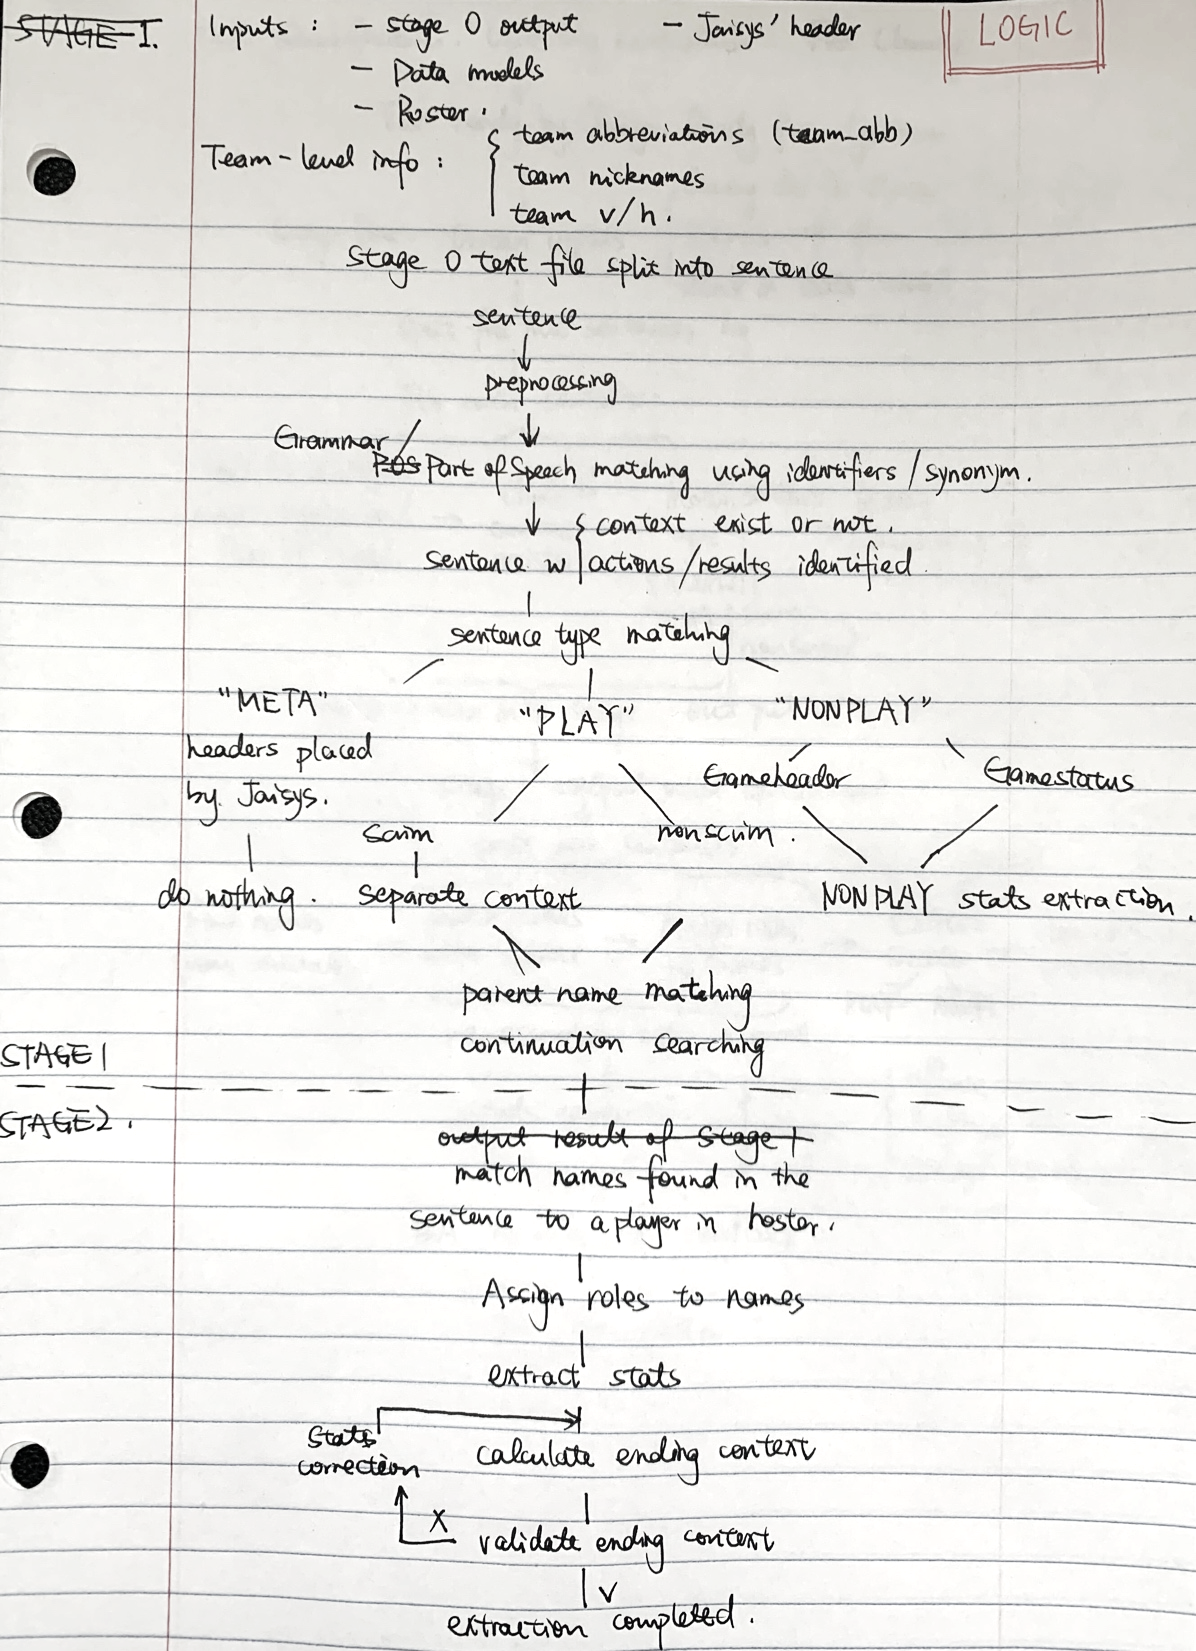 STAGE I.
Inputs : - stage 0 output - Jaisys' header
LOGIC
- Data models
- Roster.
Team-level info : team abbreviations (team_abb)
team nicknames
team v/h.
Stage 0 text file split into sentence
sentence
preprocessing
Grammar /
POS Part of Speech matching using identifiers / synonym.
context exist or not.
sentence w actions/results identified.
sentence type matching
"META" "PLAY" "NONPLAY"
headers placed Gameheader Gamestatus
by Jaisys.
scrim nonscrim.
do nothing. separate context NONPLAY stats extraction.
parent name matching
continuation searching
STAGE 1
STAGE 2.
output result of stage 1
match names found in the
sentence to a player in hoster.
Assign roles to names
extract stats
stats
correction calculate ending context
X validate ending context
V
extraction completed.